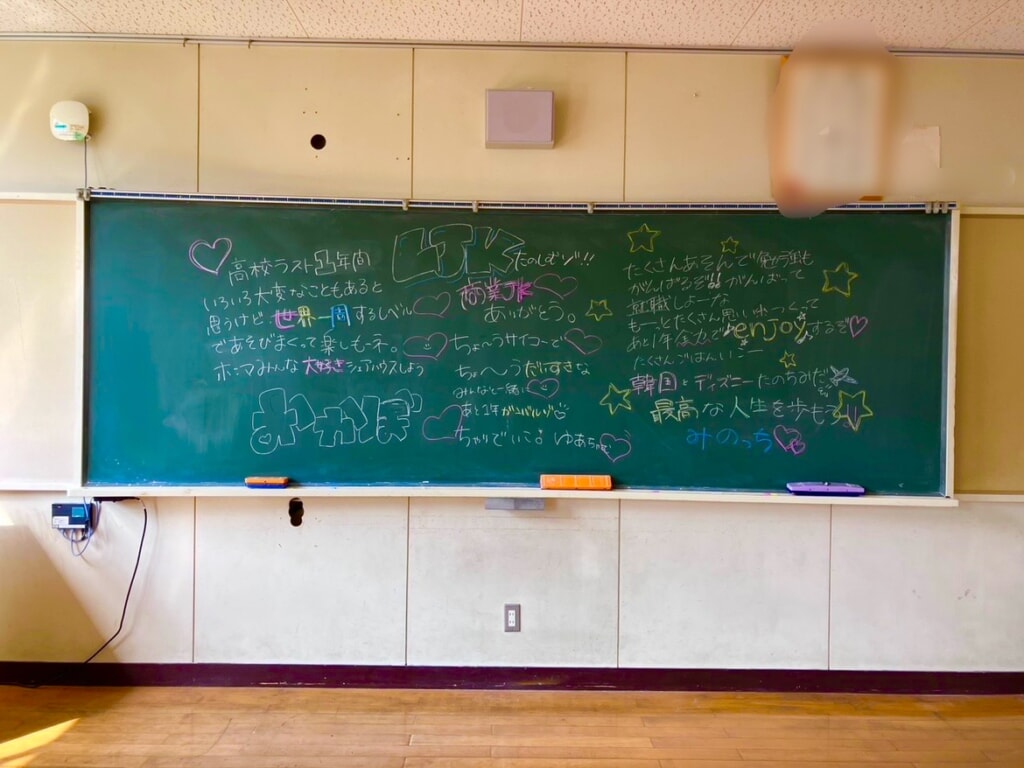 高校ラスト1年間
いろいろ大変なこともあると
思うけど世界一周するレベル
であそびまくって楽しも〜ネ。
ホンマみんな大好きシェアハウスしよう
LJK
たのしむゾ!!
商業JK
ありがとう。
ちょ〜うサイコーで
ちょ〜うだいすきな
みんなと一緒に
あと1年がんばいゾ
ちゃりでいこ。ゆあちゃむ
たくさんあそんで勉強も
がんばるぞ!! がんばって
就職しよーな
も一っとたくさん思い出つくって
あと1年全力でenjoyするぞ
たくさんごはんいこー
韓国とディズニーたのちみだぞ
最高な人生を歩もう
みのっち